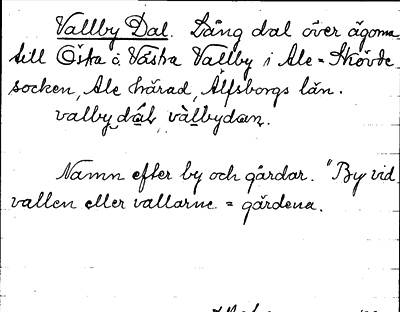 Vallby Dal. Lång dal över ägorna
till Östa o. Västra Vallby i Ale-Skövde
socken, Ale härad, Älfsborgs län.
valby dɑ́l, vàlbydan.
Namn efter by och gårdar. "By vid
vallen eller vallarne = gärdena.